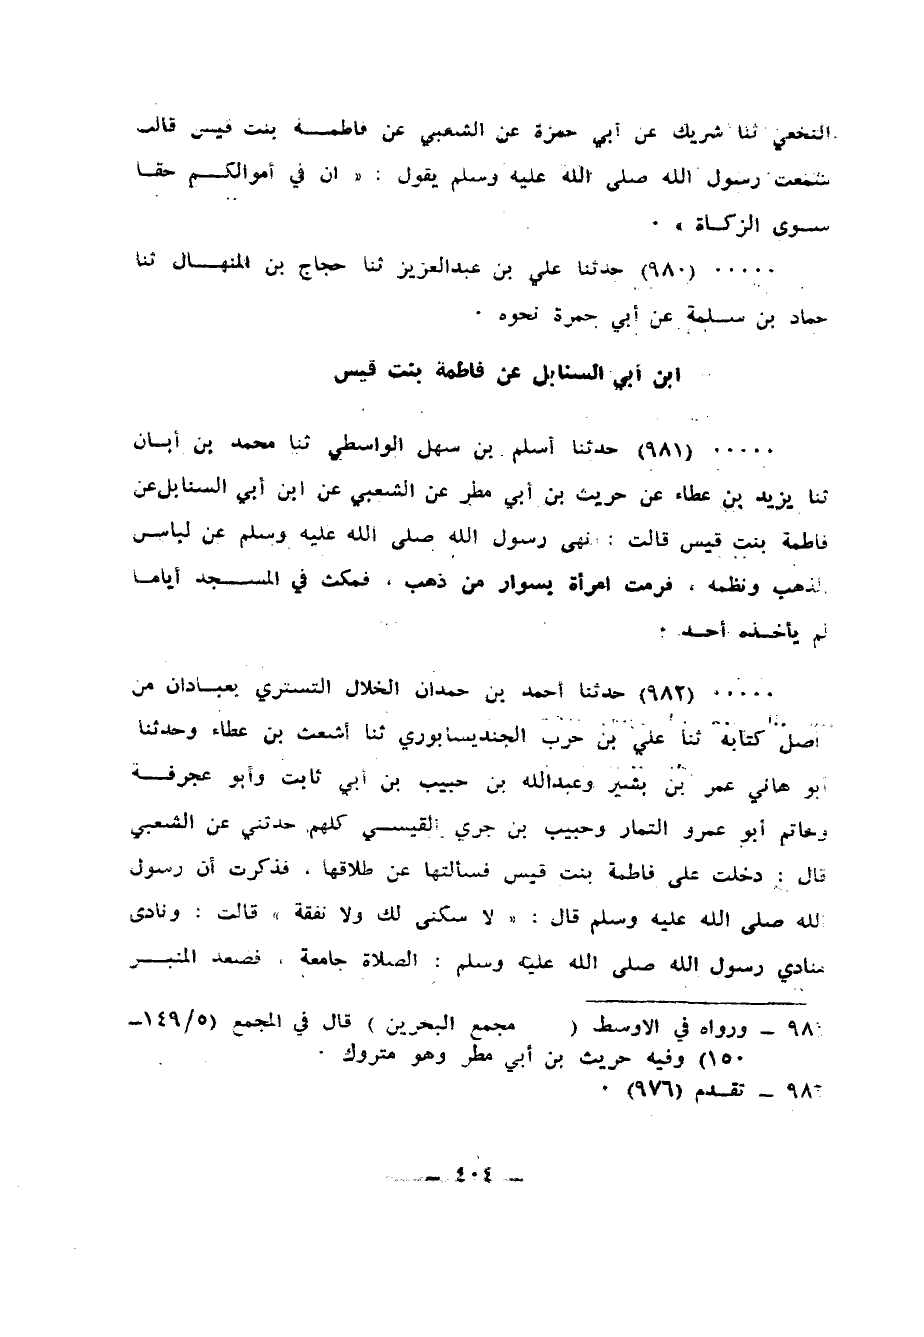 النخعي ثنا شريك عن أبي حمزة عن الشعبي عن فاطمــة بنت قيس قالت
سمعت رسول الله صلى الله عليه وسلم يقول : « ان في أموالكــم حقــا
ســوى الزكــاة » ٠
٠٠٠٠٠ (٩٨٠) حدثنا علي بن عبدالعزيز ثنا حجاج بن المنهــال ثنا
حماد بن ســلمة عن أبي حمزة نحوه ٠
ابن أبي السنابل عن فاطمة بنت قيس
٠٠٠٠٠ (٩٨١) حدثنا أسلم بن سهل الواسطي ثنا محمد بن أبــان
ثنا يزيد بن عطاء عن حريث بن أبي مطر عن الشعبي عن ابن أبي السنابل عن
فاطمة بنت قيس قالت : نهى رسول الله صلى الله عليه وسلم عن لباس
الذهب ونظمه ، فرمت امرأة بسوار من ذهب ، فمكث في المســجد أيامــا
لم يأخــذه أحــد ٠
٠٠٠٠٠ (٩٨٢) حدثنا أحمد بن حمدان الخلال التستري بعبــادان من
أصل كتابه ثنا علي بن حرب الجنديسابوري ثنا أشعث بن عطاء وحدثنا
أبو هاني عمر بن بشير وعبدالله بن حبيب بن أبي ثابت وأبو عجرفــة
وحاتم أبو عمرو التمار وحبيب بن جري القيســي كلهم حدثني عن الشعبي
قال : دخلت على فاطمة بنت قيس فسألتها عن طلاقها ، فذكرت أن رسول
الله صلى الله عليه وسلم قال : « لا سكنى لك ولا نفقة » قالت : ونادى
منادي رسول الله صلى الله عليه وسلم : الصلاة جامعة ، فصعد المنبــر
٩٨ ـ ورواه في الاوسط ( مجمع البحرين ) قال في المجمع (١٤٩/٥ـ
١٥٠) وفيه حريث بن أبي مطر وهو متروك ٠
٩٨ ـ تقــدم (٩٧٦) ٠
ـ ٤٠٤ ـ